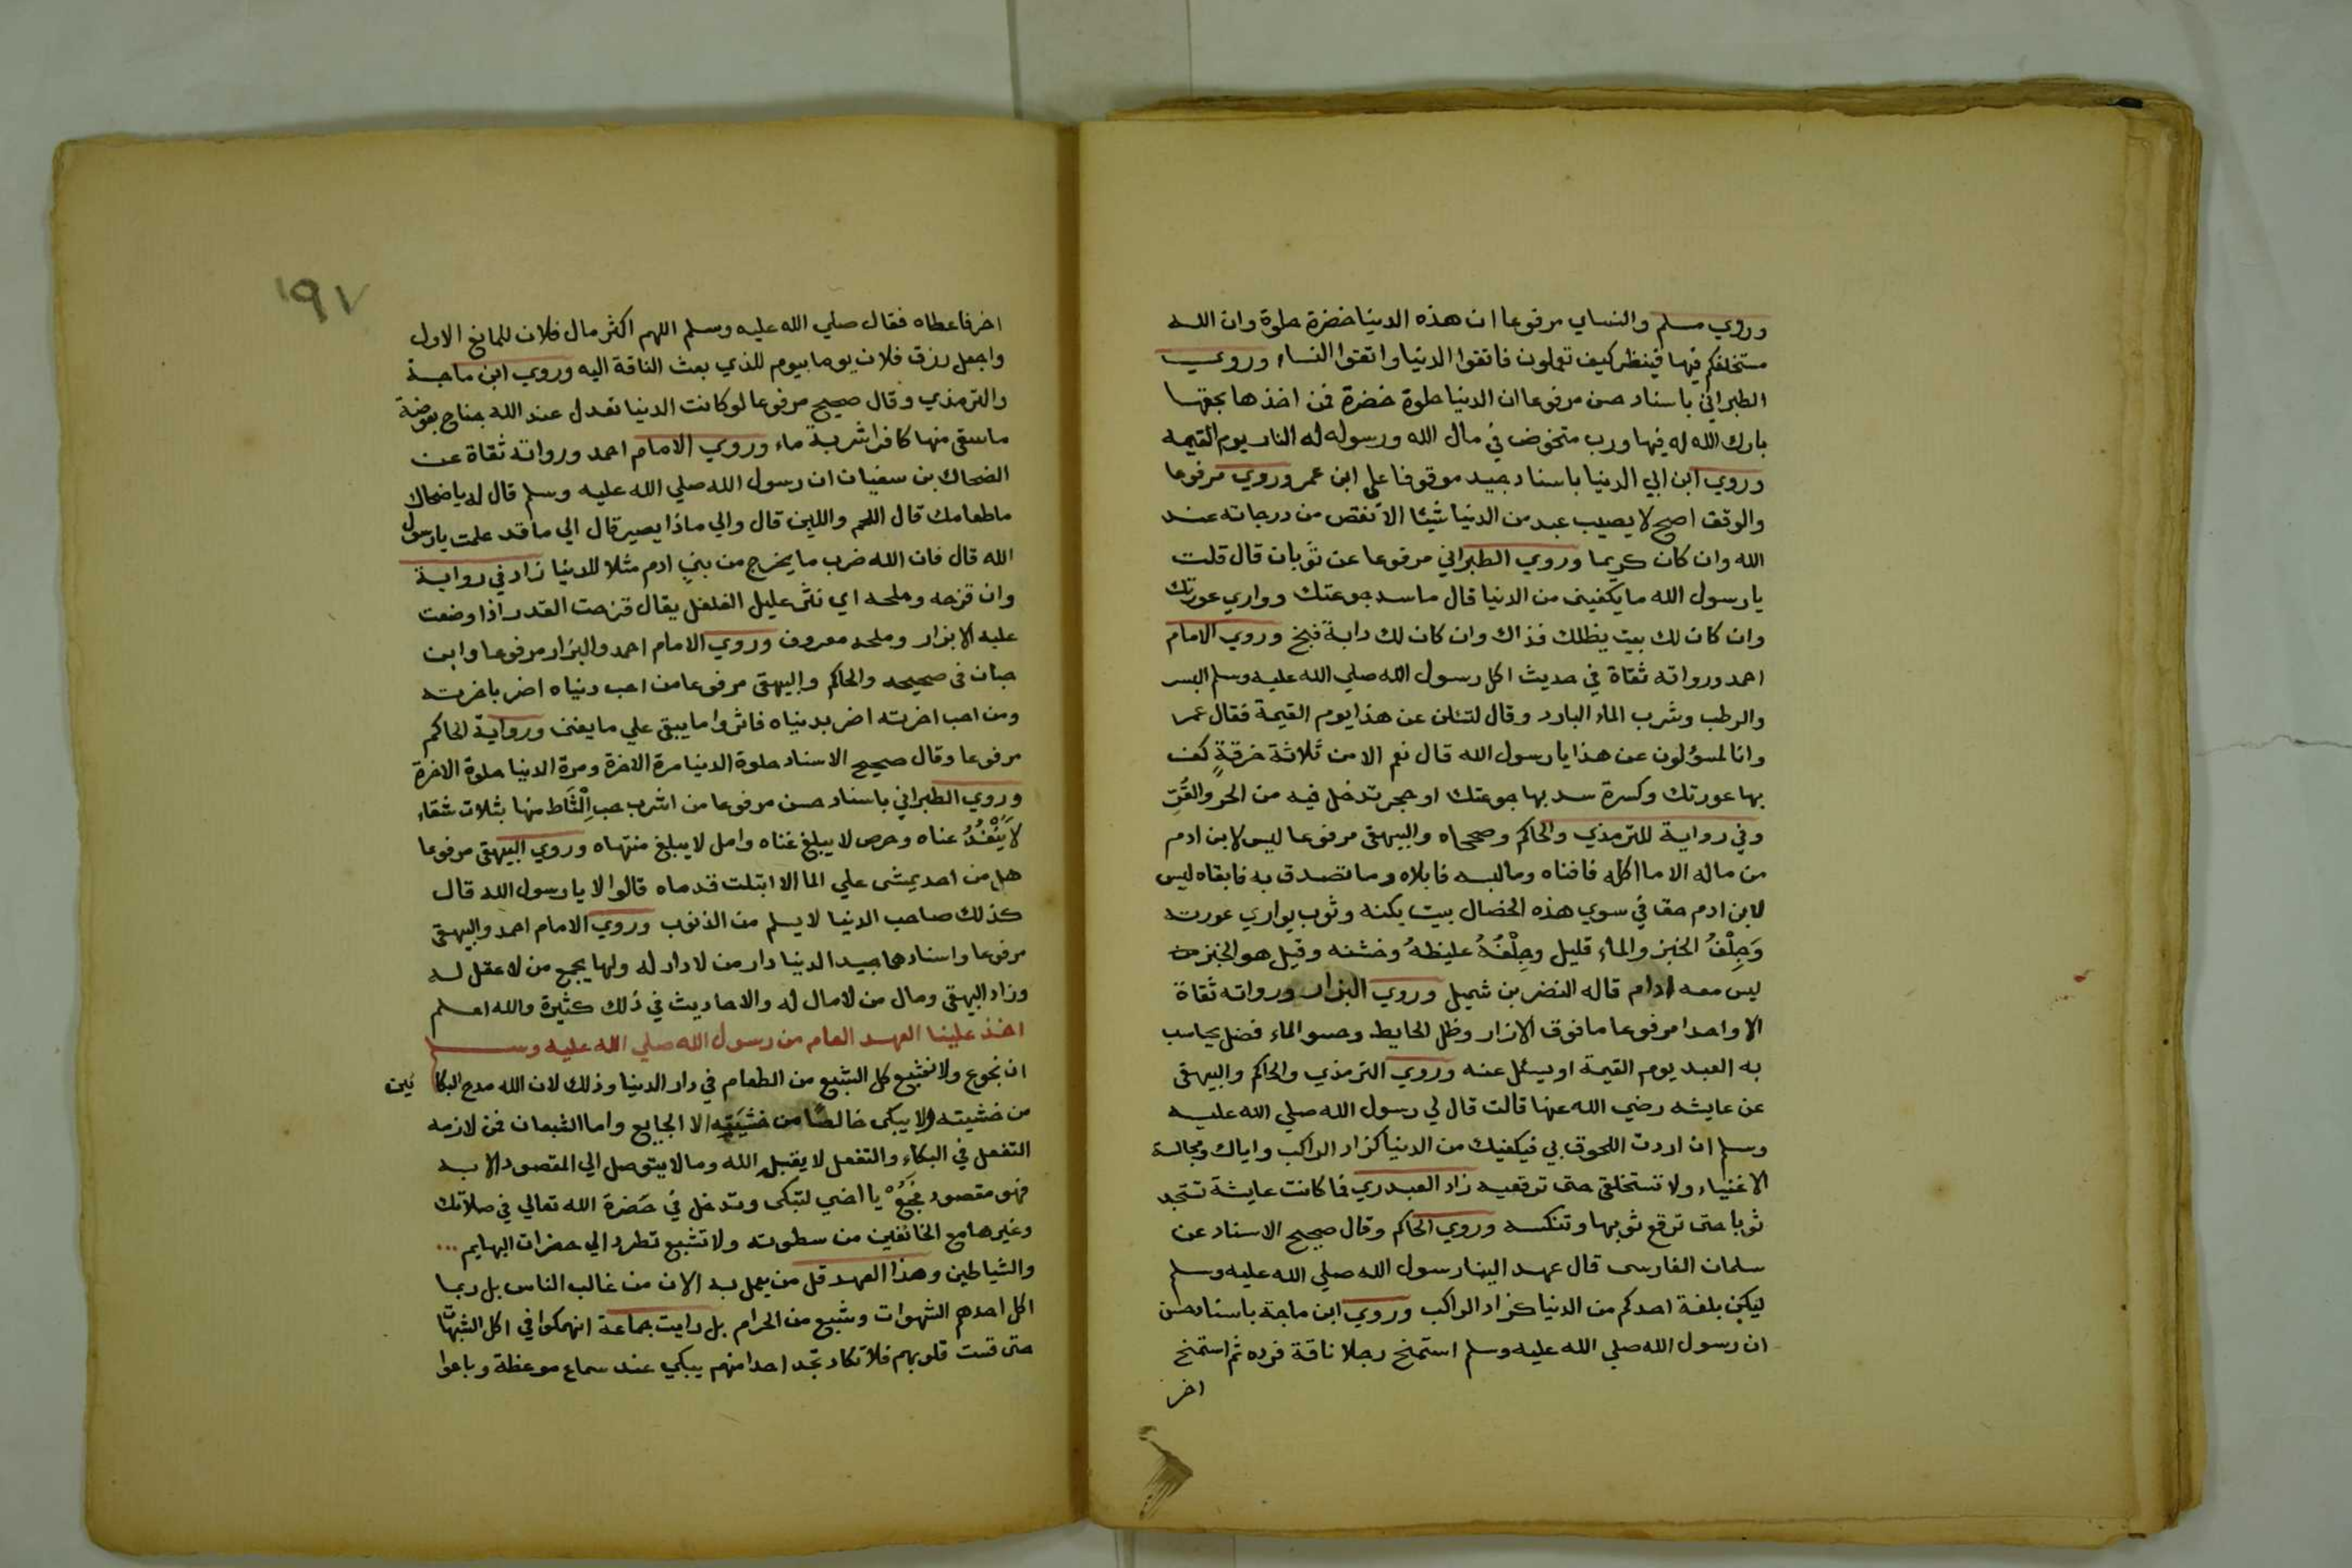 وروي مسلم والنساي مرفوعا ان هذه الدنيا خضرة حلوة وان الله
مستخلفكم فيها فينظر كيف تعملون فاتقوا الدنيا واتقوا النساء وروي
الطبراني باسناد حسن مرفوعا ان الدنيا حلوة خضرة فمن اخذها بحقها
بارك الله له فيها ورب متخوض في مال الله ورسوله له النار يوم القيمه
وروي ابن ابي الدنيا باسناد جيد موقوفا علي ابن عمر وروي مرفوعا
والوقف اصح لا يصيب عبد من الدنيا شيئا الا نقص من درجاته عند
الله وان كان كريما وروي الطبراني مرفوعا عن ثوبان قال قلت
يا رسول الله ما يكفيني من الدنيا قال ما سد جوعتك وواري عورتك
وان كان لك بيت يظلك فذاك وان كان لك دابة فبخ وروي الامام
احمد ورواته ثقاة في حديث اكل رسول الله صلي الله عليه وسلم البسر
والرطب وشرب الماء البارد وقال لتسئلن عن هذا يوم القيمة فقال عمر
وانا لمسؤلون عن هذا يا رسول الله قال نعم الا من ثلاثة خرقةٍ كف
بها عورتك وكسرة سد بها جوعتك او حجر تدخل فيه من الحر والقُرِّ
وفي رواية للترمذي والحاكم وصححاه والبيهقي مرفوعا ليس لابن ادم
من ماله الا ما اكله فافناه وما لبسه فابلاه وما تصدق به فابقاه ليس
لابن ادم حق في سوي هذه الخصال بيت يكنه وثوب يواري عورته
وَجِلْفُ الخبز والماء قليل وجِلْفُهُ غليظهُ وخشنه وقيل هو الخبز
ليس معه ادام قاله النضر بن شميل وروي البزار ورواته ثقاة
الا واحدا مرفوعا ما فوق الازار وظل الحايط وحسو الماء فضل يحاسب
به العبد يوم القيمة او يسئل عنه وروي الترمذي والحاكم والبيهقي
عن عايشه رضي الله عنها قالت قال لي رسول الله صلي الله عليه
وسلم ان اردت اللحوق بي فيكفيك من الدنيا كزاد الراكب واياك ومجالسة
الاغنياء ولا تستخلقي حتي ترقعيه زاد العبدري فما كانت عايشة تستجد
ثوبا حتي ترقع ثوبها وتنكسه وروي الحاكم وقال صحيح الاسناد عن
سلمان الفارسي قال عهد الينا رسول الله صلي الله عليه وسلم
ليكن بلغة احدكم من الدنيا كزاد الراكب وروي ابن ماجة باسناد حسن
ان رسول الله صلي الله عليه وسلم استمنح رجلا ناقة فرده ثم استمنح
اخر
١٩٧
اخر فاعطاه فقال صلي الله عليه وسلم اللهم اكثر مال فلان للمانع الاول
واجعل رزق فلان يوما بيوم للذي بعث الناقة اليه وروي ابن ماجة
والترمذي وقال صحيح مرفوعا لو كانت الدنيا تعدل عند الله جناح بعوضة
ما سقي منها كافرا شربة ماء وروي الامام احمد ورواته ثقاة عن
الضحاك بن سفيان ان رسول الله صلي الله عليه وسلم قال له يا ضحاك
ما طعامك قال اللحم واللبن قال والي ماذا يصير قال الي ما قد علمت يا رسول
الله قال فان الله ضرب ما يخرج من بني ادم مثلا للدنيا زاد في رواية
وان قزحه وملحه اي نثر عليه الفلفل يقال قزحت القدر اذا وضعت
عليه الابزار وملحه معروف وروي الامام احمد والبزار مرفوعا وابن
حبان في صحيحه والحاكم والبيهقي مرفوعا من احب دنياه اضر باخرته
ومن احب اخرته اضر بدنياه فاثروا ما يبقي علي ما يفني ورواية الحاكم
مرفوعا وقال صحيح الاسناد حلوة الدنيا مرة الاخرة ومرة الدنيا حلوة الاخرة
وروي الطبراني باسناد حسن مرفوعا من اشرب حب الْتَاط منها بثلاث شقاء
لا يَنْفَدُ عناه وحرص لا يبلغ غناه وامل لا يبلغ منتهاه وروي البيهقي مرفوعا
هل من احد يمشي علي الما الا ابتلت قدماه قالوا لا يا رسول الله قال
كذلك صاحب الدنيا لا يسلم من الذنوب وروي الامام احمد والبيهقي
مرفوعا واسنادهما جيد الدنيا دار من لا دار له ولها يجمع من لا عقل له
وزاد البيهقي ومال من لا مال له والاحاديث في ذلك كثيرة والله اعلم
اخذ علينا العهد العام من رسول الله صلي الله عليه وسلم
ان نجوع ولا نشبع كل الشبع من الطعام في دار الدنيا وذلك لان الله مدح البكا ئين
من خشيته ولا يبكي خالصًا من خشيته الا الجايع واما الشبعان فمن لازمه
التفعل في البكاء والتفعل لا يقبل الله وما لا يتوصل الي المقصود الا به
فهو مقصود فجَعْ يا اخي لتبكي وتدخل في حَضرة الله تعالي في صلاتك
وغيرها مع الخائفين من سطوته ولا تشبع تطرد الي حضرات البهايم ...
والشياطين وهذا العهد قل من يعمل به الان من غالب الناس بل ربما
اكل احدهم الشهوات وشبع من الحرام بل رايت جماعة انهمكوا في اكل الشبهات
حتي قست قلوبهم فلا تكاد تجد احدا منهم يبكي عند سماع موعظة وباعوا